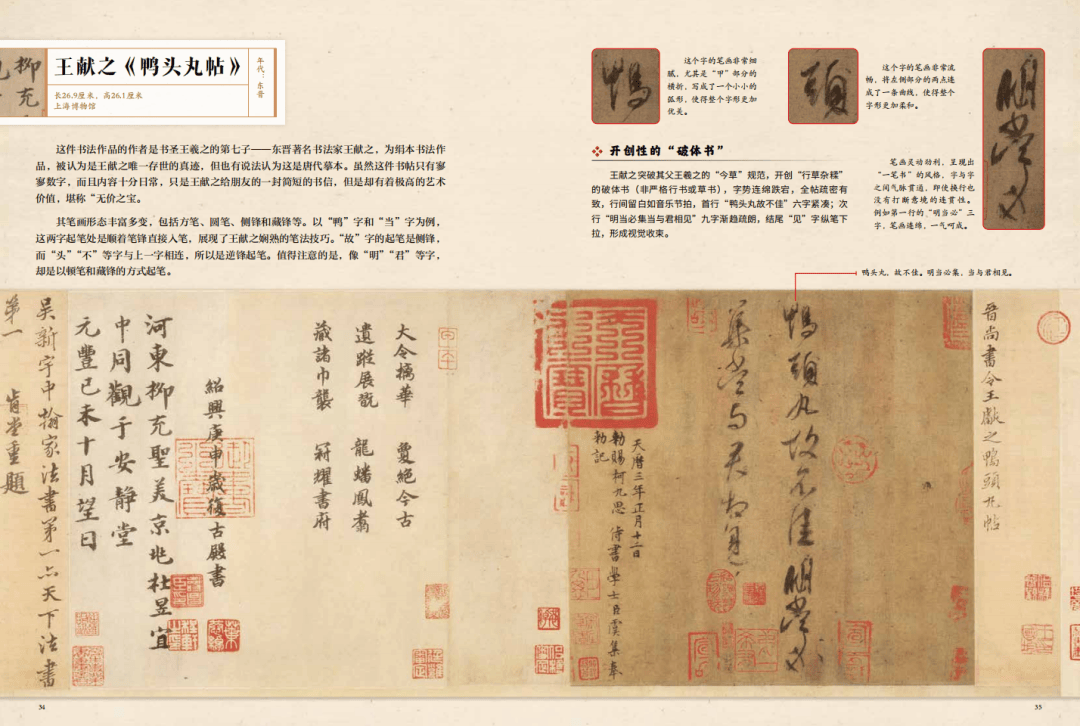 王献之《鸭头丸帖》
年代：东晋
长26.9厘米，高26.1厘米
上海博物馆
这件书法作品的作者是书圣王羲之的第七子——东晋著名书法家王献之，为绢本书法作
品，被认为是王献之唯一存世的真迹，但也有说法认为这是唐代摹本。虽然这件书帖只有寥
寥数字，而且内容十分日常，只是王献之给朋友的一封简短的书信，但是却有着极高的艺术
价值，堪称“无价之宝。
其笔画形态丰富多变，包括方笔、圆笔、侧锋和藏锋等。以“鸭”字和“当”字为例，
这两字起笔处是顺着笔锋直接入笔，展现了王献之娴熟的笔法技巧。“故”字的起笔是侧锋，
而“头”“不”等字与上一字相连，所以是逆锋起笔。值得注意的是，像“明”“君”等字，
却是以顿笔和藏锋的方式起笔。
鸭
这个字的笔画非常细
腻，尤其是“甲”部分的
横折，写成了一个小小的
弧形，使得整个字形更加
优美。
頭
这个字的笔画非常流
畅，将左侧部分的两点连
成了一条曲线，使得整个
字形更加柔和。
明當必
笔画灵动劲利，呈现出
“一笔书”的风格，字与字
之间气脉贯通，即使换行也
没有打断意境的连贯性。
例如第一行的“明当必”三
字，笔画连绵，一气呵成。
开创性的“破体书”
王献之突破其父王羲之的“今草”规范，开创“行草杂糅”
的破体书（非严格行书或草书），字势连绵跌宕，全帖疏密有
致，行间留白如音乐节拍，首行“鸭头丸故不佳”六字紧凑；次
行“明当必集当与君相见”九字渐趋疏朗，结尾“见”字纵笔下
拉，形成视觉收束。
鸭头丸，故不佳。明当必集，当与君相见。
晋尚書令王獻之鴨頭丸帖
鴨頭丸故不佳明當必
集當与君相見
天曆三年正月十二日
勑賜柯九思 侍書學士臣虞集奉
勑記
大令摛華 夐絕今古
遺蹤展翫 龍蟠鳳翥
藏諸巾襲 冠耀書府
紹興庚申歲復古殿書
河東柳充聖美京兆杜昱宜
中同觀于安靜堂
元豐己未十月望日
吴新宇中翰家法書第一亦天下法書
第一 肯堂重題
34
35